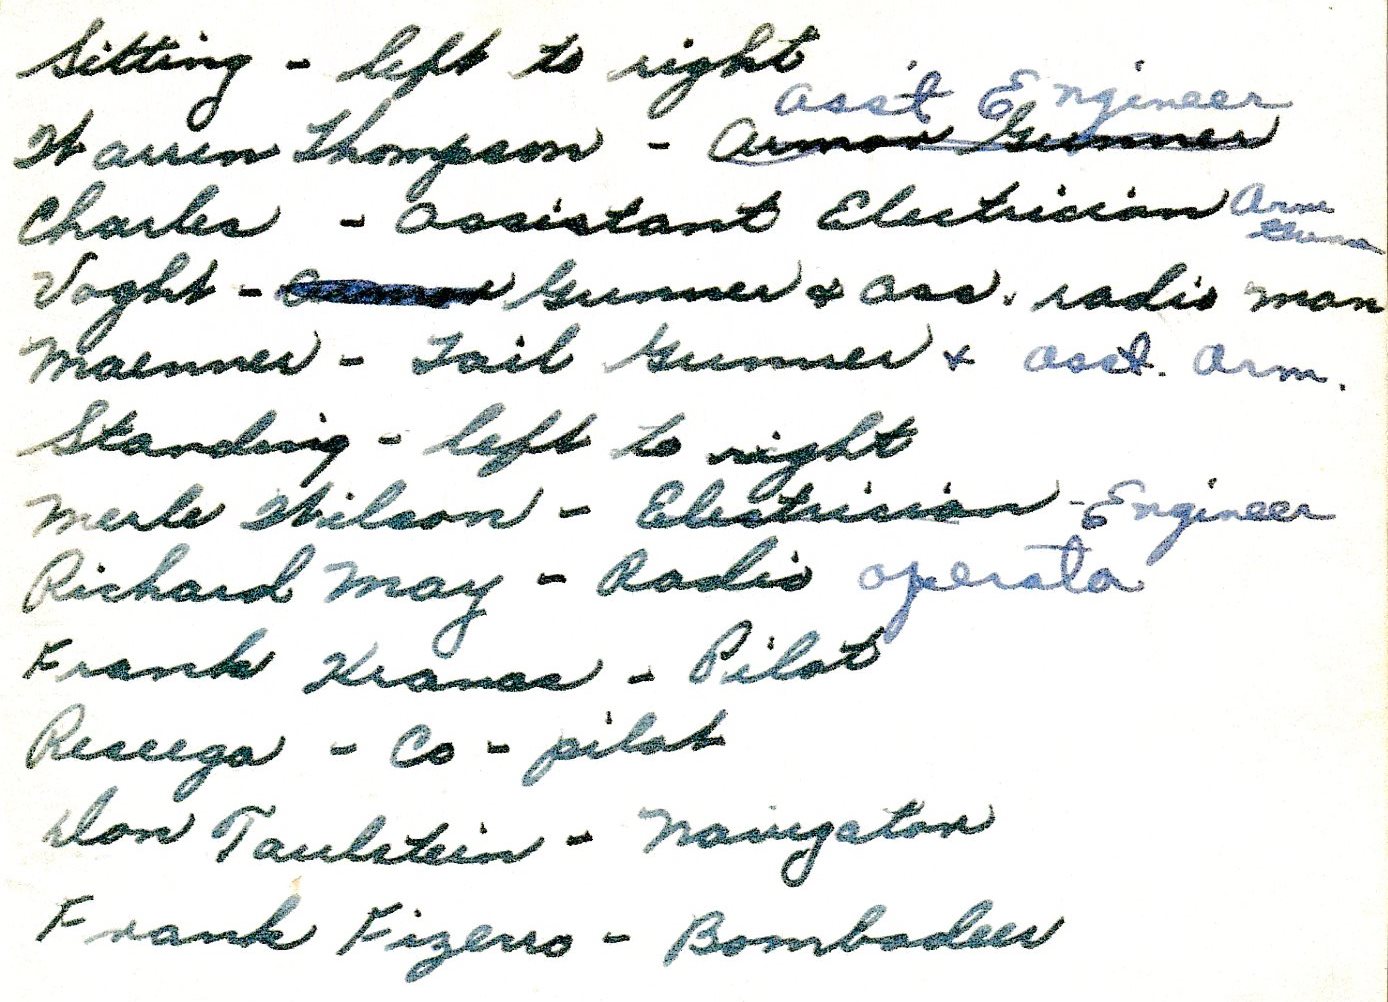 Sitting - left to right
Asst Engineer
Warren Thompson - Armor Gunner
Charles - Assistant Electrician Arm Gunn
Voght - Armor Gunner & Ass. radio man
Maenner - Tail Gunner & Asst. Arm.
Standing - left to right
Merle Wilson - Electrician - Engineer
Richard May - Radio operator
Frank Kranac - Pilot
Resega - Co-pilot
Don Taulstein - Navigator
Frank Fizerro - Bombadeer